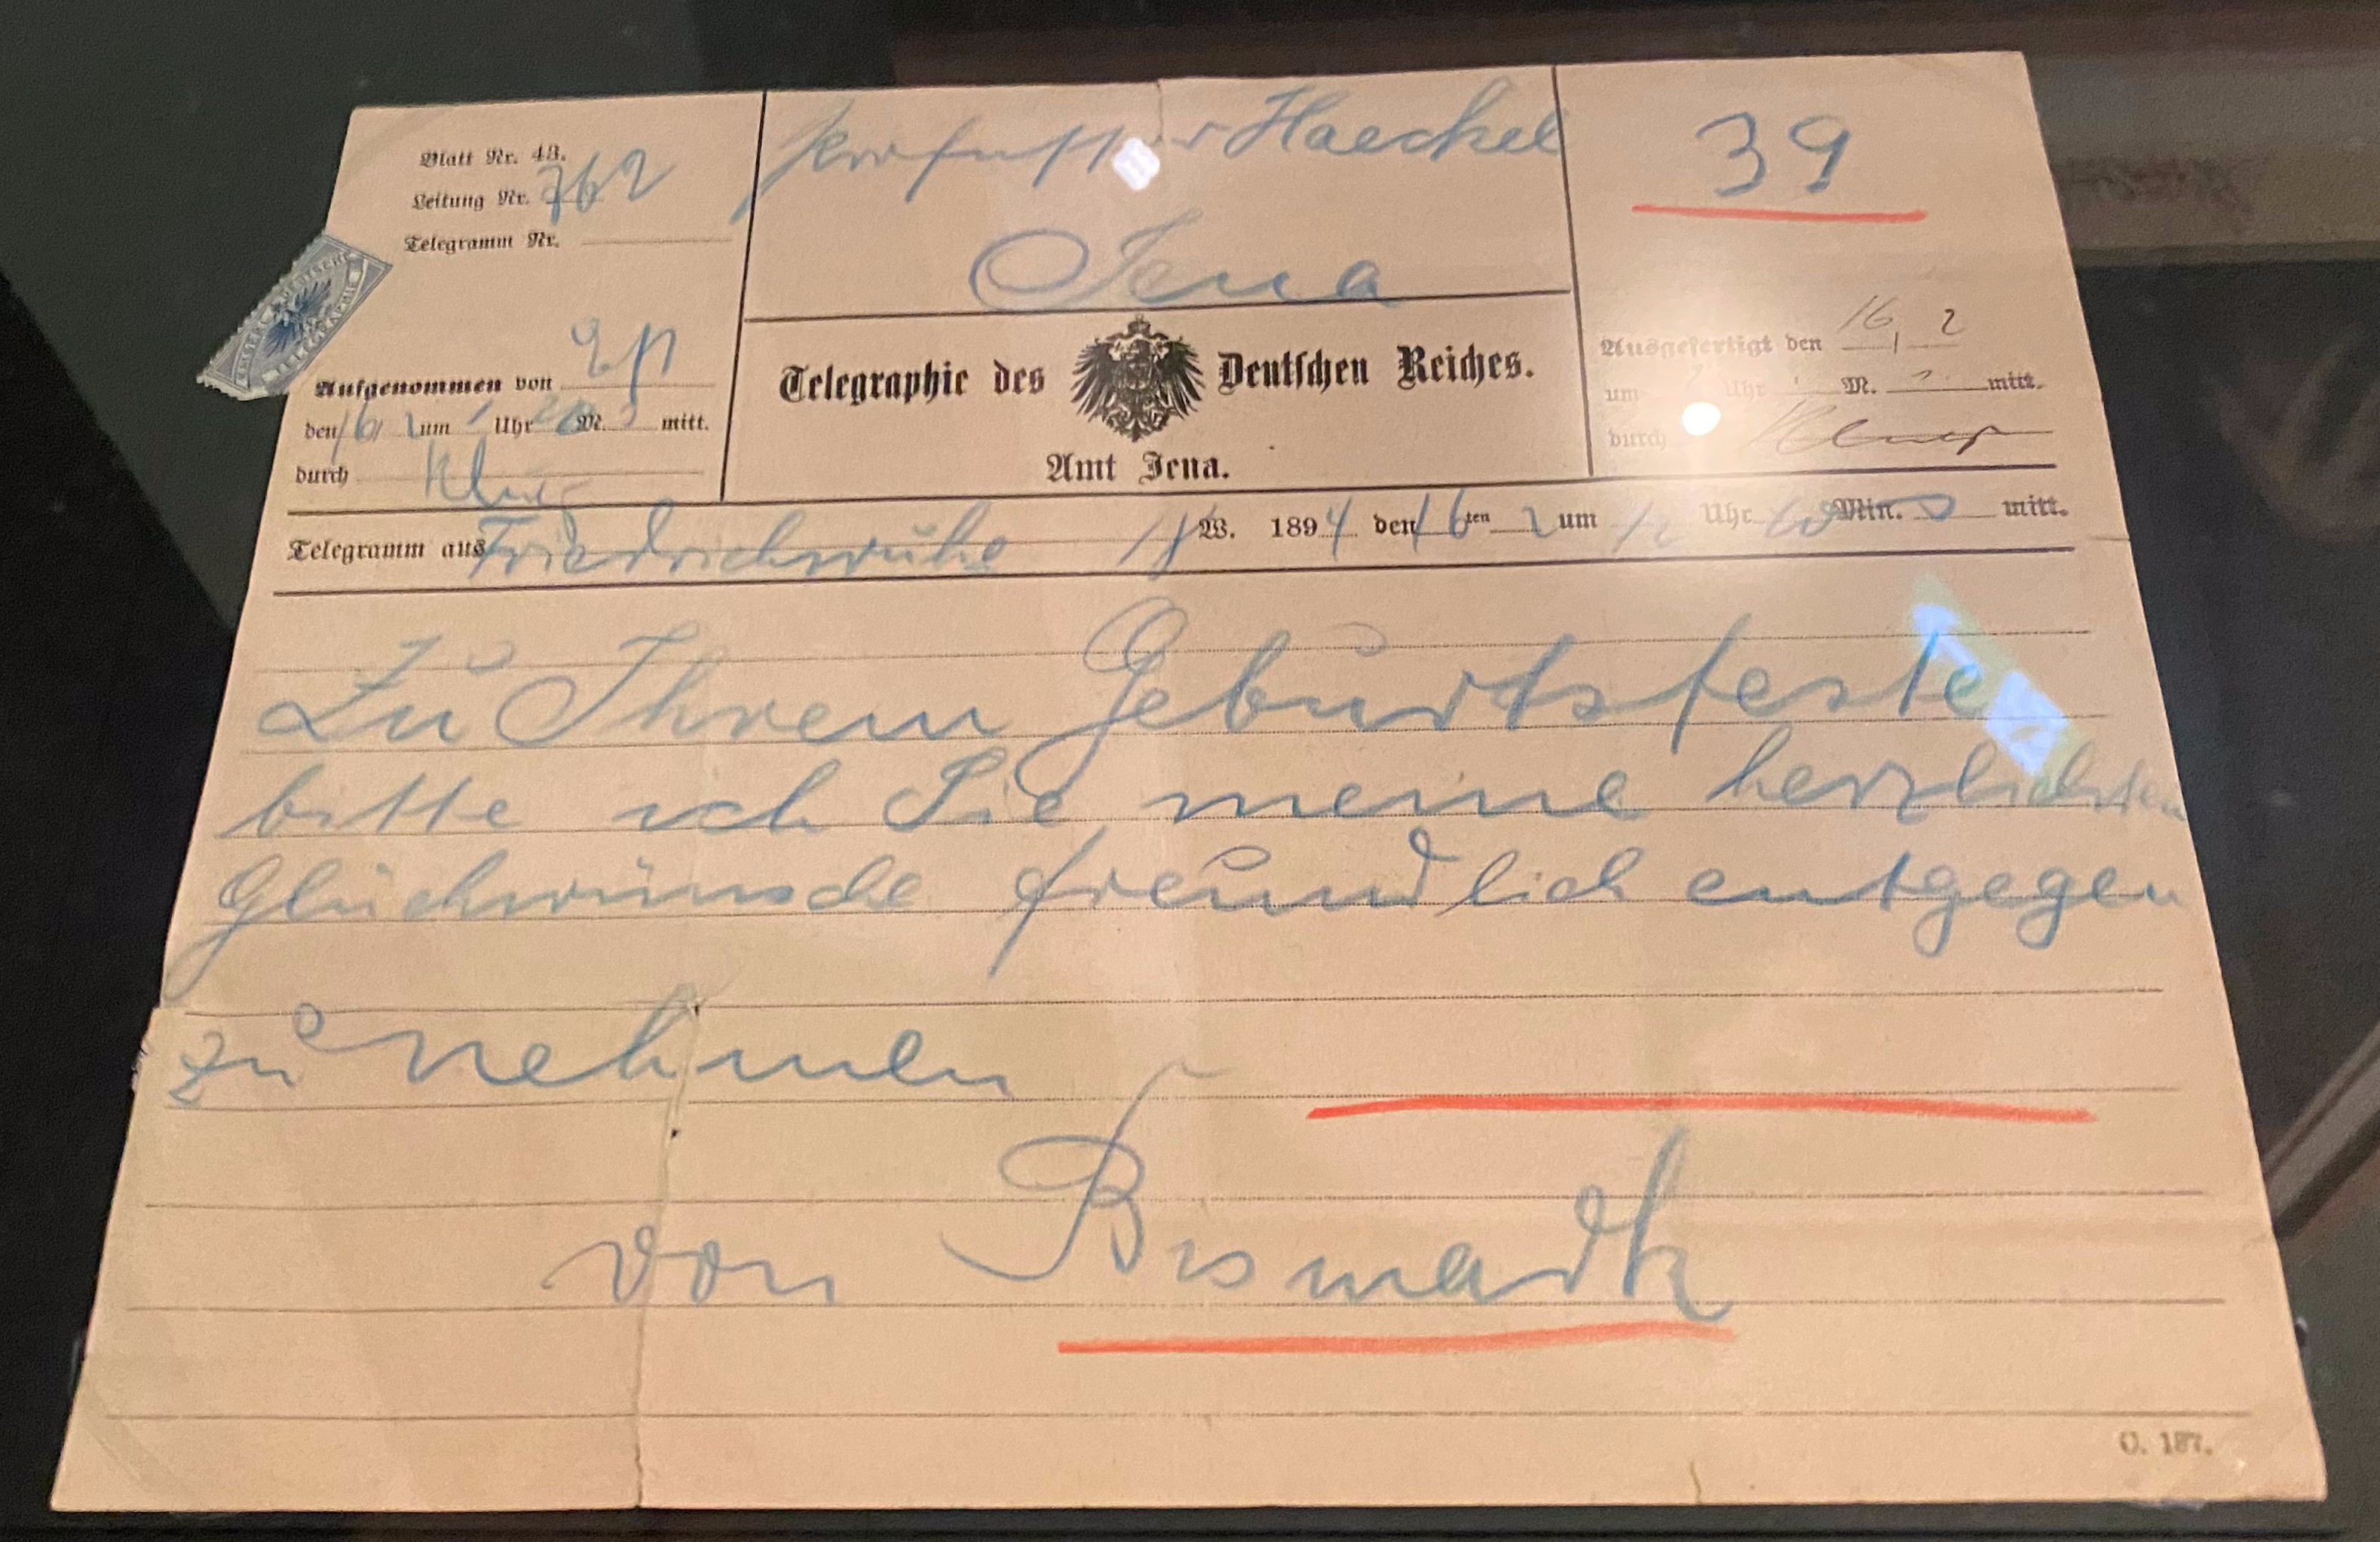 Blatt Nr. 43.
Leitung Nr. 762
Telegramm Nr.
Aufgenommen von
den 16/2 um 1 Uhr 20 M. mitt.
durch
Professor Haeckel
Jena
Telegraphie des Deutschen Reiches.
Amt Jena.
39
Ausgefertigt den 16/2
um Uhr M. mitt.
durch
Telegramm aus Friedrichsruhe W. 1894 den 16ten 2 um 12 Uhr Min. mitt.
Zu Ihrem Geburtsfeste
bitte ich Sie, meine herzlichsten
Glückwünsche freundlich entgegen
zu nehmen
von Bismarck
C. 187.